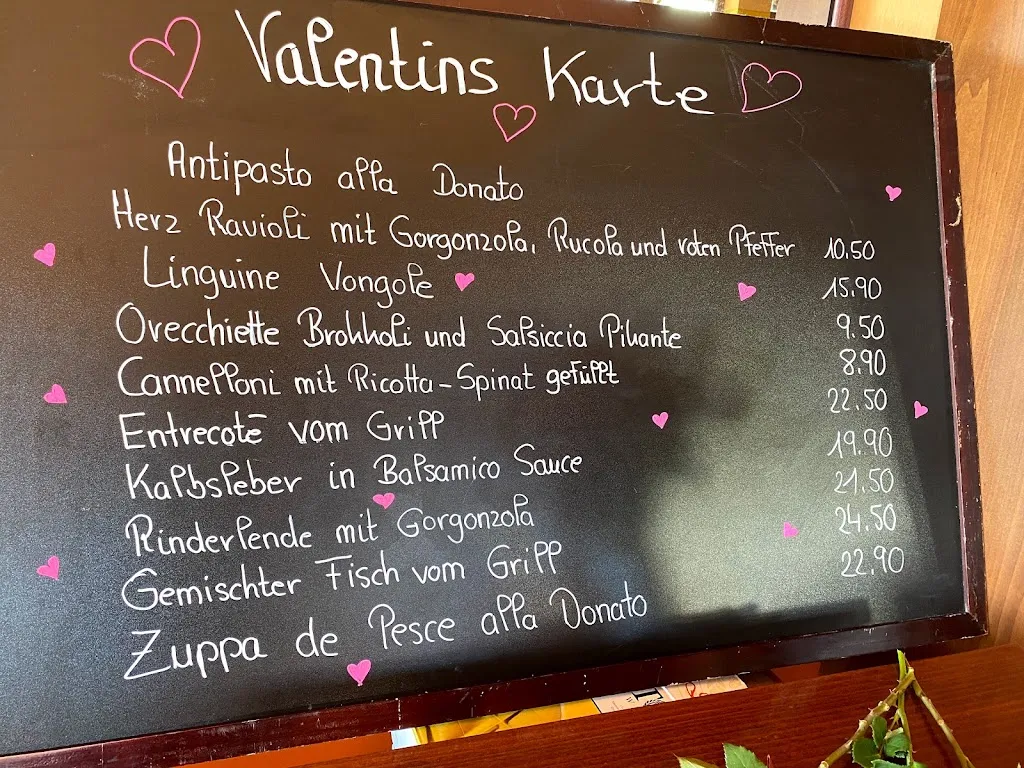 Valentins Karte
Antipasto alla Donato
Herz Ravioli mit Gorgonzola, Rucola und roten Pfeffer 10.50
Linguine Vongole 15.90
Orecchiette Brokkoli und Salsiccia Pikante 9.50
Cannelloni mit Ricotta-Spinat gefüllt 8.90
Entrecotē vom Grill 22.50
Kalbsleber in Balsamico Sauce 19.90
Rinderlende mit Gorgonzola 21.50
Gemischter Fisch vom Grill 24.50
Zuppa de Pesce alla Donato 22.90